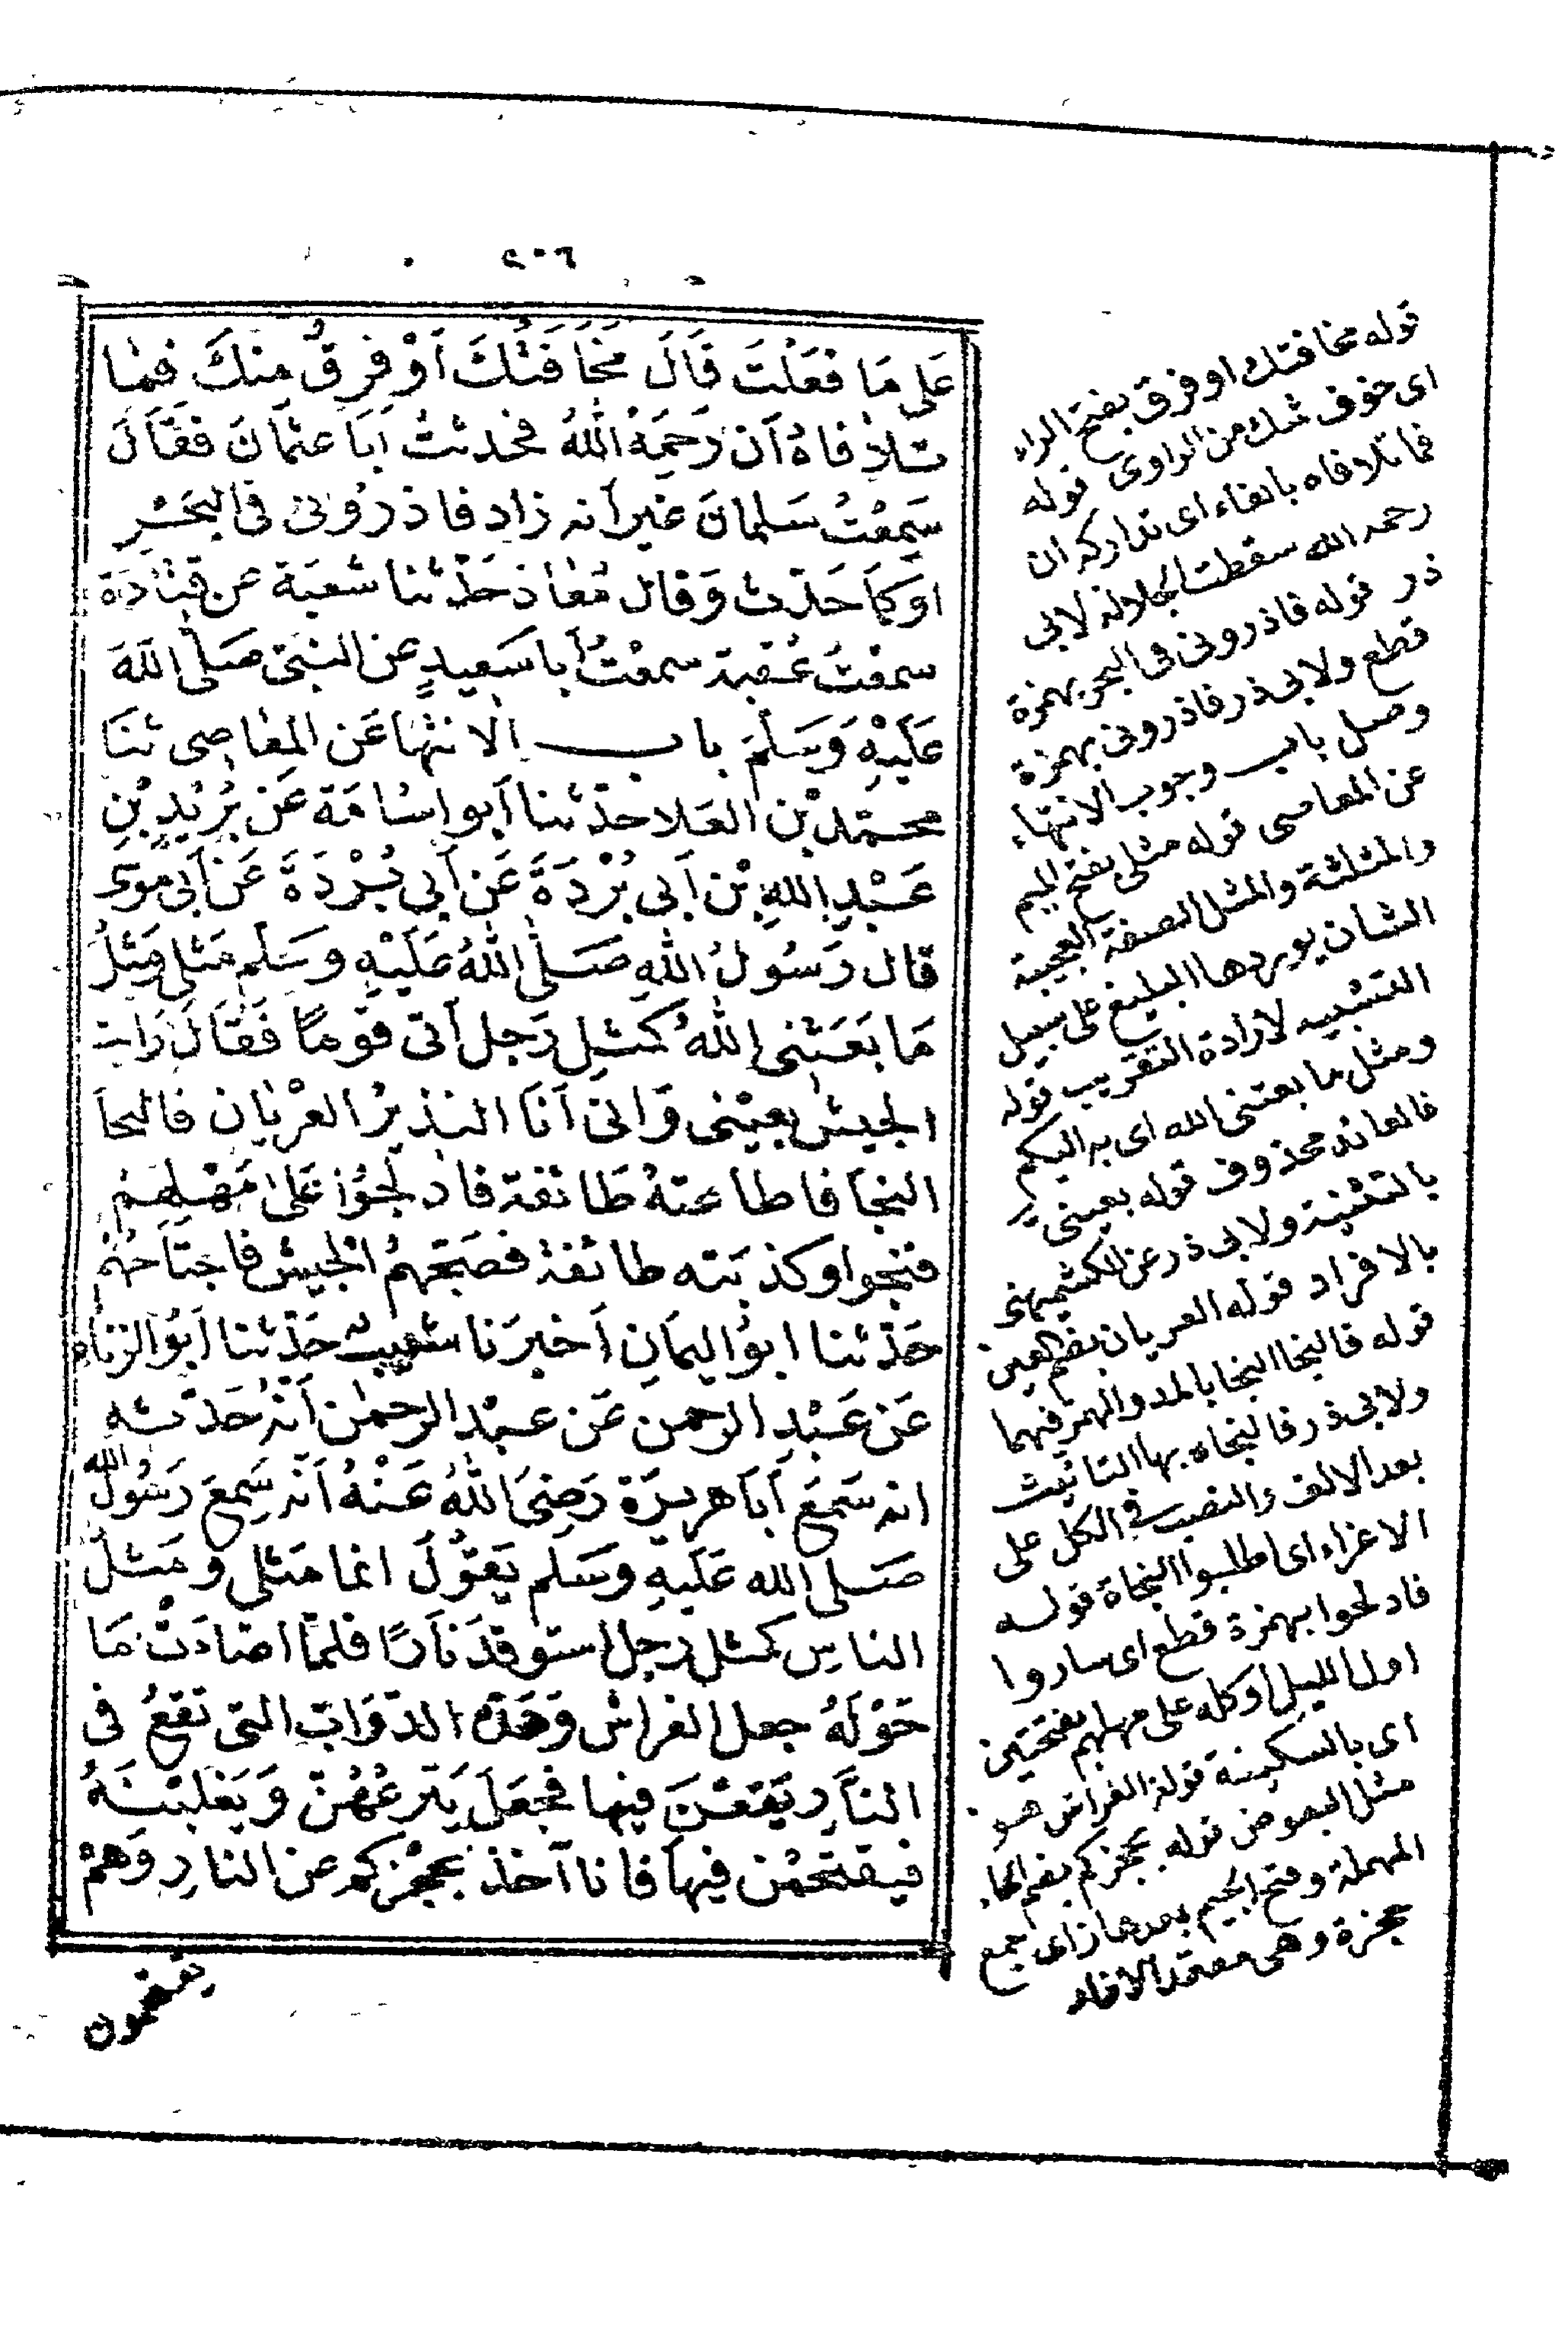 ٢٠٦
عَلى مَا فعَلْتَ قَالَ مَخَافَتُكَ اَوْ فرِقٌ مِنكَ فما
تلافاهُ اَن رَحِمَهُ اللهُ فحدثتُ اَبَا عثمانَ فقَالَ
سَمِعْتُ سَلمانَ غيراَنه زاد فاذرُونى فى البَحْرِ
اوكمَا حَدّث وَقال مُعاذ حَدّثنا شعبَة عن قتادَة
سمعْتُ عُقبة سمعْتُ اَبا سَعيدٍ عن النبىّ صَلى اللهَ
عَلَيْهِ وَسَلمَ باب الانتهَا عَن المعاصِى ثنَا
محمّد بْن العَلا حدّثنا اَبو اسُامَة عَن بُرَيْدِ بْنِ
عَبْدِ اللهِ بْن اَبى بُرْدَةَ عَن اَبى بُرْدَةَ عَن اَبى موسى
قال رَسُولُ اللهِ صَلى اللهُ عَلَيْهِ وسَلم مَثلى وَمَثلُ
مَا بَعَثنى اللهُ كمثلِ رَجل اَتى قومًا فقَالَ رَايت
الجيش بعينىّ وَانى اَنَا النذيرُ العرْيَان فالنجا
النجَا فاطاعتهُ طَائفة فادلجُوا عَلى مَهْلِهِمْ
فنجوا وكذبته طائفة فصَبّحَهمُ الجيش فاجتاحهُمْ
حَدّثنا ابوُ اليمَانِ اَخبرَنا شعيبٌ حَدّثنا اَبوُ الزناد
عَن عَبْدِ الرحمن عَن عبْد الرحمن اَنهُ حَدّثه
انه سَمعَ اَبَا هريرَة رَضِىَ اللهُ عَنْهُ اَنه سَمِعَ رَسُولَ الله
صَلى الله عَلَيهِ وسَلم يَقوُلُ انما مَثلى ومَثلُ
الناسِ كمثل رجل استوقدَ نَارًا فلمّا اضاءَتْ مَا
حَوْلَهُ جعل الفراش وَهَذه الدّوَابّ التى تقعُ فى
النَّارِ يَقعْنَ فيها فجعَلَ يَنزعُهُنّ وَيَغلبْنَهُ
فيقتحمْن فيهَا فانا آخذ بحجزكم عن النارِ وَهمْ
يقتحمون
قوله مخافتك او فرق بفتح الراء
اى خوف شك من الراوى قوله
فماتلافاه بالفاء اى تداركه ان
رحمه الله سقطت الجلالة لابى
ذر قوله فاذرونى فى البحر بهمزة
قطع ولابى ذر فاذرونى بهمزة
وصل باب وجوب الانتهاء
عن المعاصى قوله مثلى بفتح الميم
والمثلثة والمثل الصفة العجيبة
الشان يوردها البليغ على سبيل
التشبيه لارادة التقريب قوله
ومثل ما بعثنى الله اى به اليكم
فالعائد محذوف قوله بعينىّ
بالتثنية ولابى ذر عن الكشميهنى
بالافراد قوله العريان بضم العين
قوله فالنجا النجا بالمد والهمز فيهما
ولابى ذر فالنجاه بها التانيث
بعد الالف والنصب فى الكل على
الاغراء اى اطلبوا النجاة قوله
فادلجوا بهمزة قطع اى ساروا
اول الليل او كله على مهلهم بفتحتين
اى بالسكينة قوله الفراش هو
مثل البعوض قوله بحجزكم بضم الحاء
المهملة وفتح الجيم بعدها زاى جمع
حجزة وهى معقد الازار